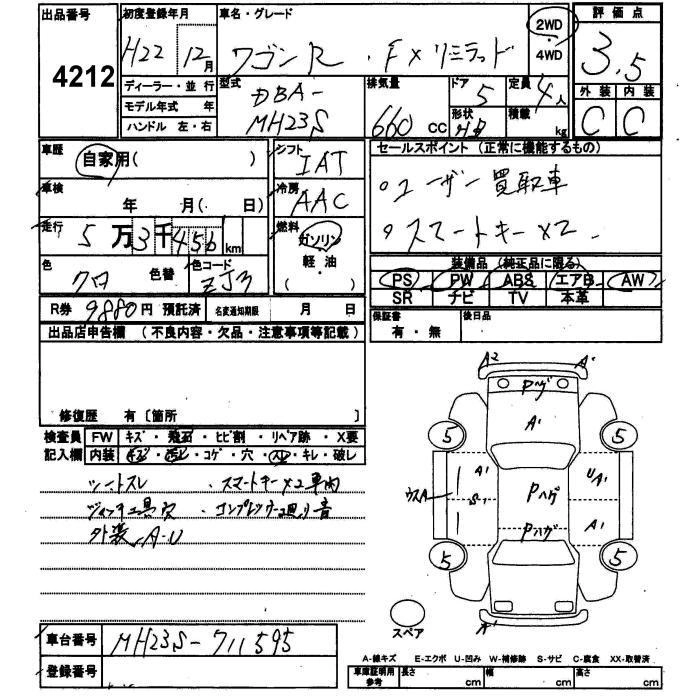 出品番号
4212
初度登録年月
H22 12月
ディーラー・並行
モデル年式 年
ハンドル 左・右
車名・グレード
ワゴンR . FXリミテッド
2WD
・
4WD
評価点
3.5
型式
DBA-
MH23S
排気量
660 cc
ドア
5
形状
HB
定員
4人
積載
kg
外装 内装
C C
車歴
自家用( )
車検
年 月( 日)
走行
5万3千456km
色
クロ 色替
色コード
ZJ3
シフト
IAT
冷房
AAC
燃料
ガソリン
軽・油
( )
セールスポイント (正常に機能するもの)
。ユーザー買取車
。スマートキー×2
装備品 (純正品に限る)
PS PW ABS エアB AW
SR ナビ TV 本革
R券 9880円 預託済
名変通知期限 月 日
保証書
有・無
後日品
出品店申告欄 (不良内容・欠品・注意事項等記載)
修復歴 有〔箇所 〕
検査員 FW キズ・飛石・ヒビ割・リペア跡・X要
記入欄 内装 キズ・汚レ・コゲ・穴・スレ・キレ・破レ
シートスレ . スマートキー×2車内
ジャッキ工具欠 . コンプレッサー廻り音
外装 A-U
A2 A1
Pハゲ
A1
5 5
ウスA A1 S1 Pハゲ UA1 A1
Pハゲ
5 5
スペア A1
車台番号 MH23S-711595
登録番号
A-線キズ E-エクボ U-凹み W-補修跡 S-サビ C-腐食 XX-取替済
車庫証明用
参考
長さ cm 幅 cm 高さ cm